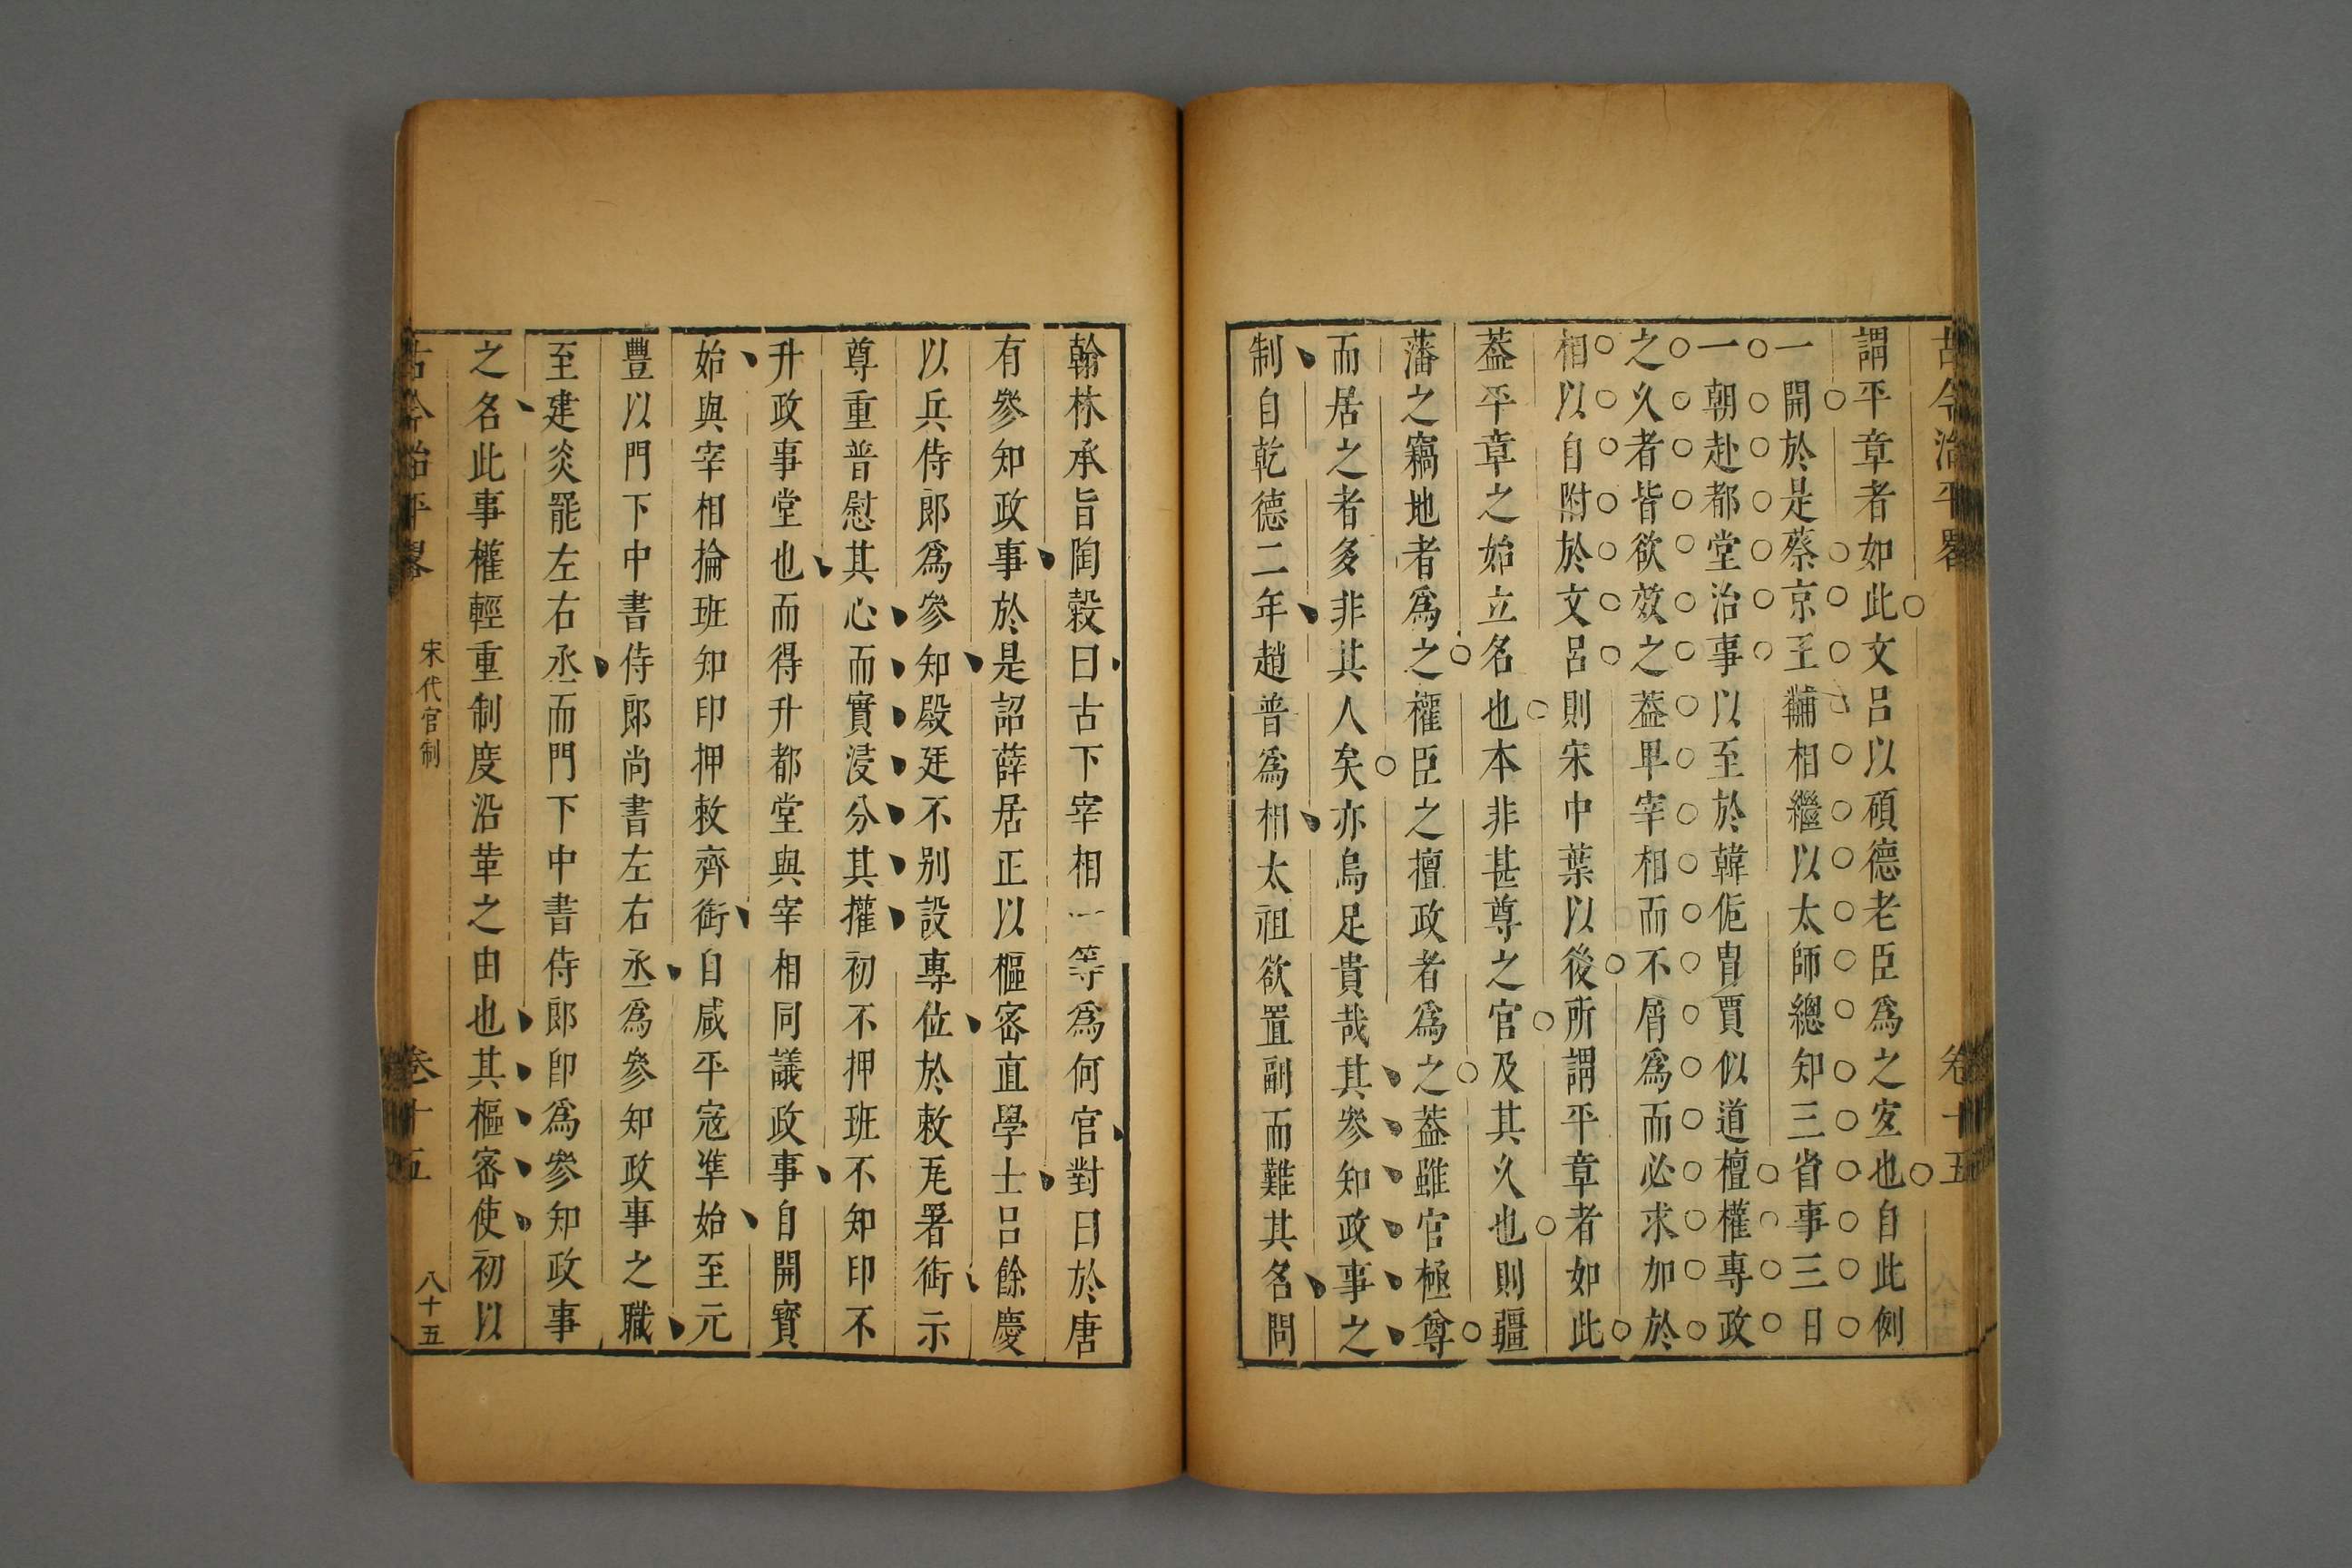 古今治平畧 卷十五
謂平章者如此文呂以碩德老臣爲之宐也自此例
一開於是蔡京王黼相繼以太師總知三省事三日
一朝赴都堂治事以至於韓侂冑賈似道檀權專政
之久者皆欲效之葢卑宰相而不屑爲而必求加於
相以自附於文呂則宋中葉以後所謂平章者如此
葢平章之始立名也本非甚尊之官及其久也則疆
藩之竊地者爲之權臣之擅政者爲之葢雖官極尊
而居之者多非其人矣亦烏足貴哉其參知政事之
制自乾德二年趙普爲相太祖欲置副而難其名問
翰林承旨陶穀曰古下宰相一等爲何官對曰於唐
有參知政事於是詔薛居正以樞密直學士呂餘慶
以兵侍郎爲參知殿廷不别設專位於敕尾署銜示
尊重普慰其心而實浸分其權初不押班不知印不
升政事堂也而得升都堂與宰相同議政事自開寳
始與宰相掄班知印押敕齊銜自咸平寇準始至元
豐以門下中書侍郎尚書左右丞爲參知政事之職
至建炎罷左右丞而門下中書侍郎卽爲參知政事
之名此事權輕重制度沿革之由也其樞密使初以
古今治平畧 宋代官制 卷十五 八十五